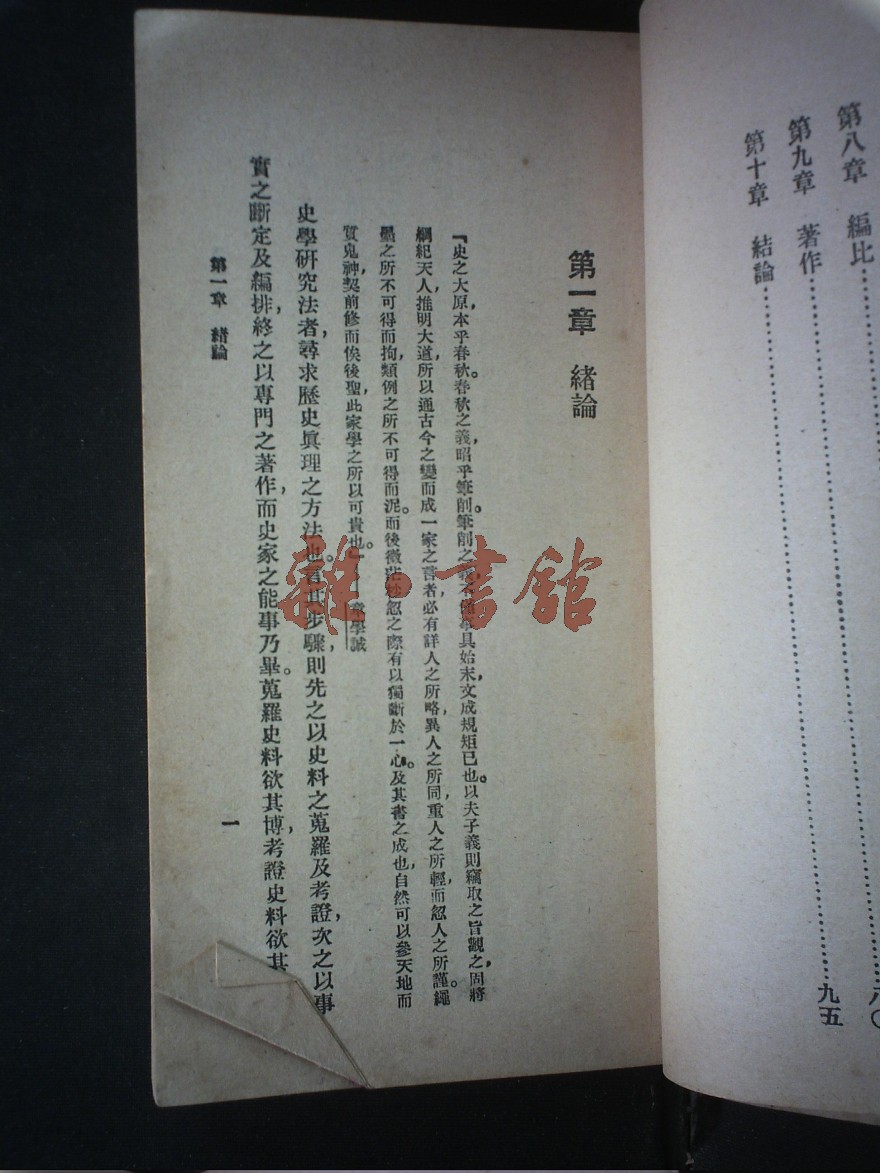 第八章　編比…………………………六〇
第九章　著作
第十章　結論…………………………九五
第一章　緒論
『史之大原，本乎春秋。春秋之義，昭乎筆削。筆削之義，不僅事具始末，文成規矩已也。以夫子義則竊取之旨觀之，固將
綱紀天人，推明大道，所以通古今之變而成一家之言者，必有詳人之所略，異人之所同，重人之所輕，而忽人之所謹，繩
墨之所不可得而拘，類例之所不可得而泥。而後微茫杪忽之際，有以獨斷於一心。及其書之成也，自然可以參天地而
質鬼神，契前修而俟後聖，此家學之所以可貴也。』　章學誠
史學研究法者，尋求歷史眞理之方法也。言其步驟，則先之以史料之蒐羅及考證，次之以事
實之斷定及編排，終之以專門之著作，而史家之能事乃畢。蒐羅史料欲其博，考證史料欲其
第一章　緒論
一
雜·書館